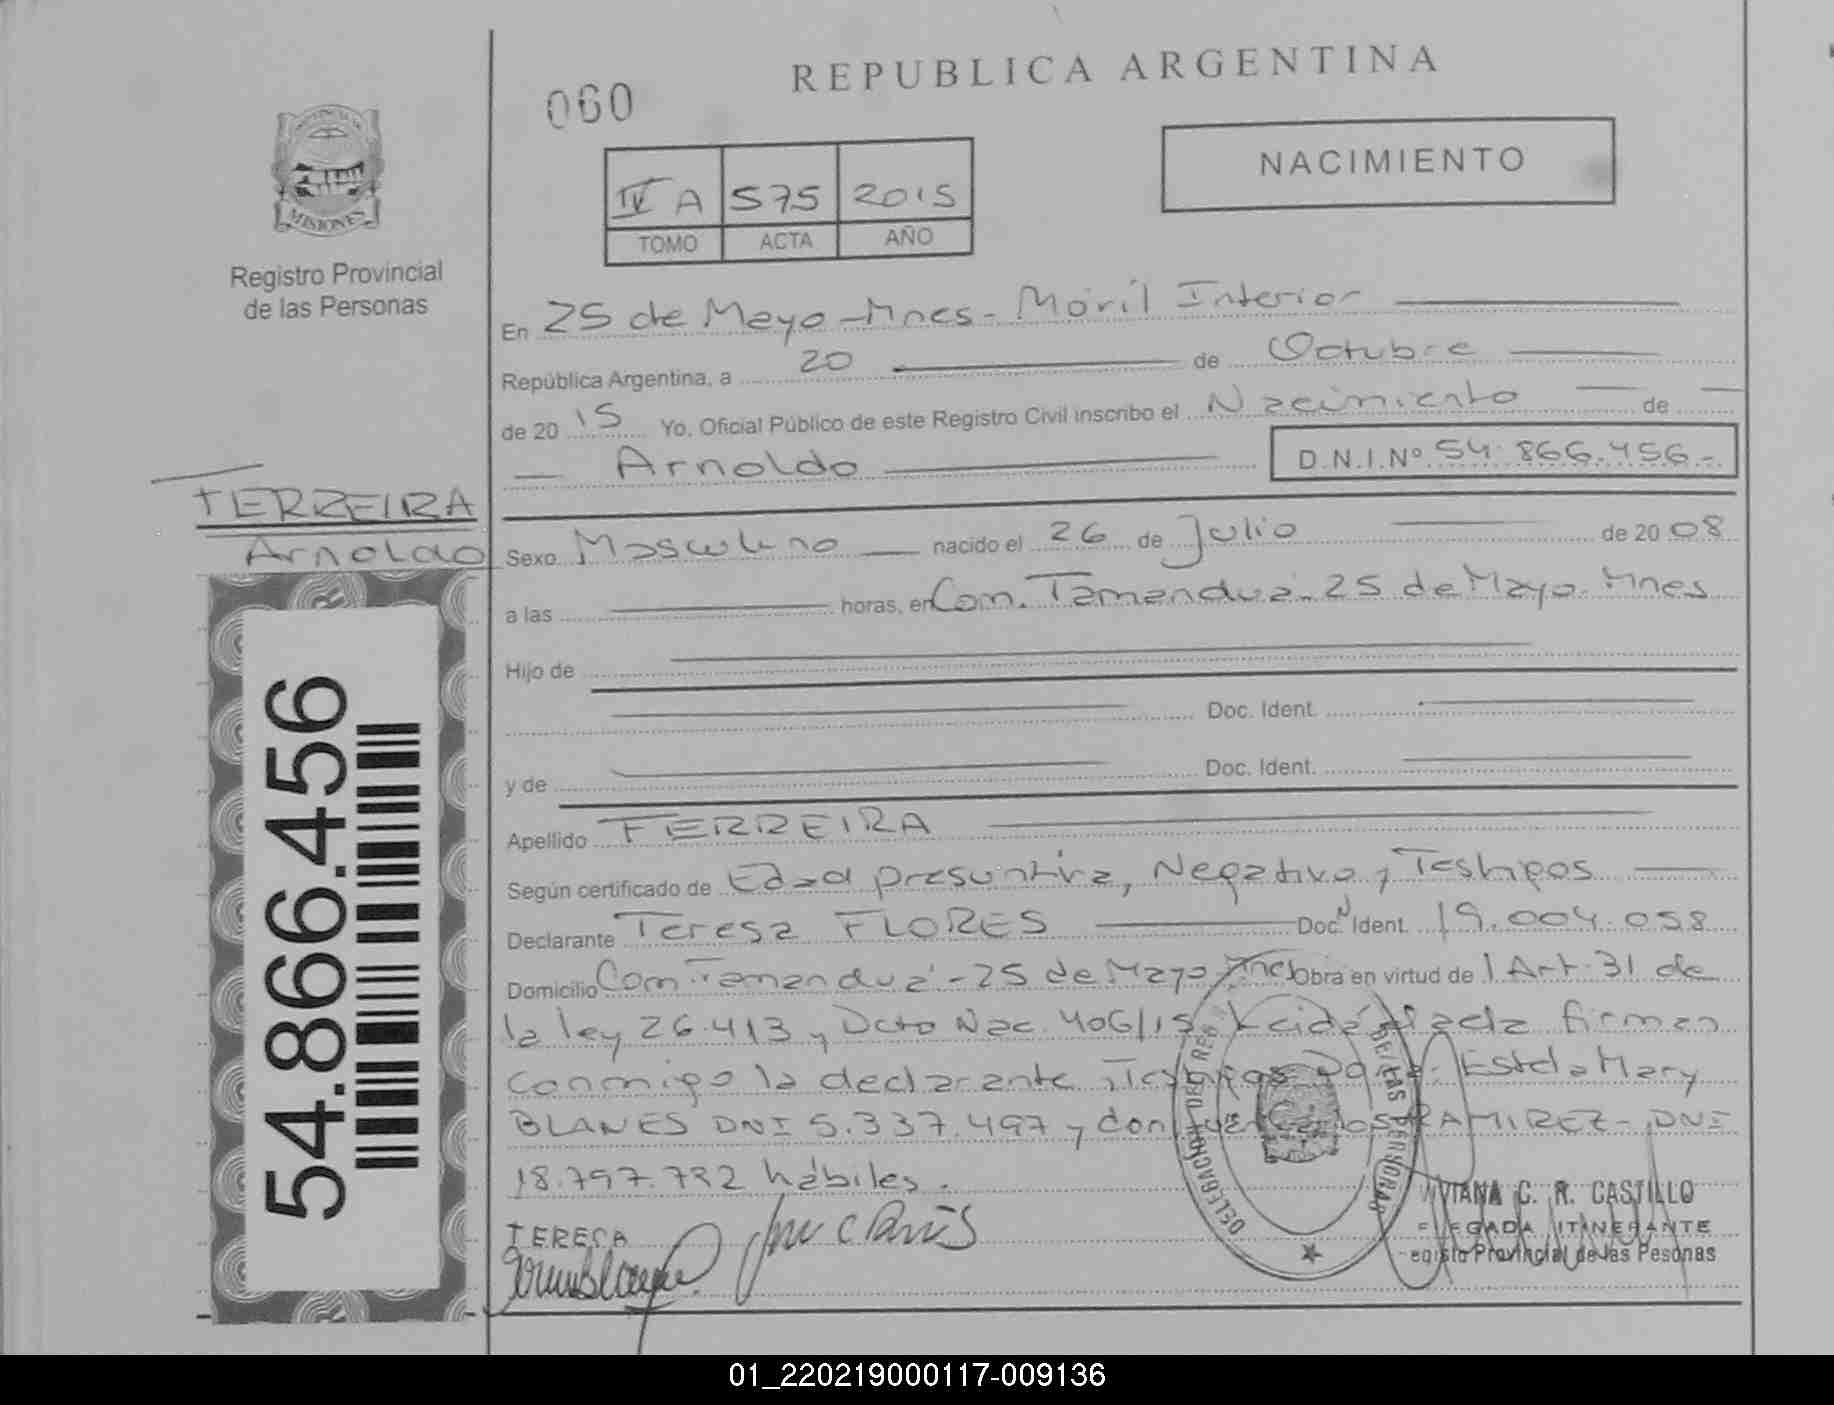 REPUBLICA ARGENTINA
060
NACIMIENTO
IV A 575 2015
TOMO ACTA AÑO
MISIONES
Registro Provincial
de las Personas
En 25 de Mayo - Mnes - Móvil Interior
República Argentina, a 20 de Octubre
de 2015 Yo, Oficial Público de este Registro Civil inscribo el Nacimiento de
Arnoldo D.N.I.Nº 54.866.456-
FERREIRA
Arnoldo
Sexo Masculino nacido el 26 de Julio de 2008
a las horas, en Com. Tamanduá - 25 de Mayo. Mnes
Hijo de
Doc. Ident.
y de Doc. Ident.
Apellido FERREIRA
Según certificado de Edad presuntiva, Negativo y Testigos
Declarante Teresa FLORES Doc. Ident. 19.004.058
Domicilio Com. Tamanduá - 25 de Mayo Mnes Obra en virtud de l Art. 31 de
la ley 26.413 y Dcto Nac. 406/15. Leída el acta firman
conmigo la declarante, Testigos Doña: Estela Mary
BLANES DNI 5.337.497 y don Juan Carlos RAMIREZ - DNI
18.797.732 hábiles.
54.866.456
TERESA
DELEGACION DEL REG. DE LAS PERSONAS
VIVIANA C. R. CASTILLO
DELEGADA ITINERANTE
Registro Provincial de las Pesonas
01_220219000117-009136